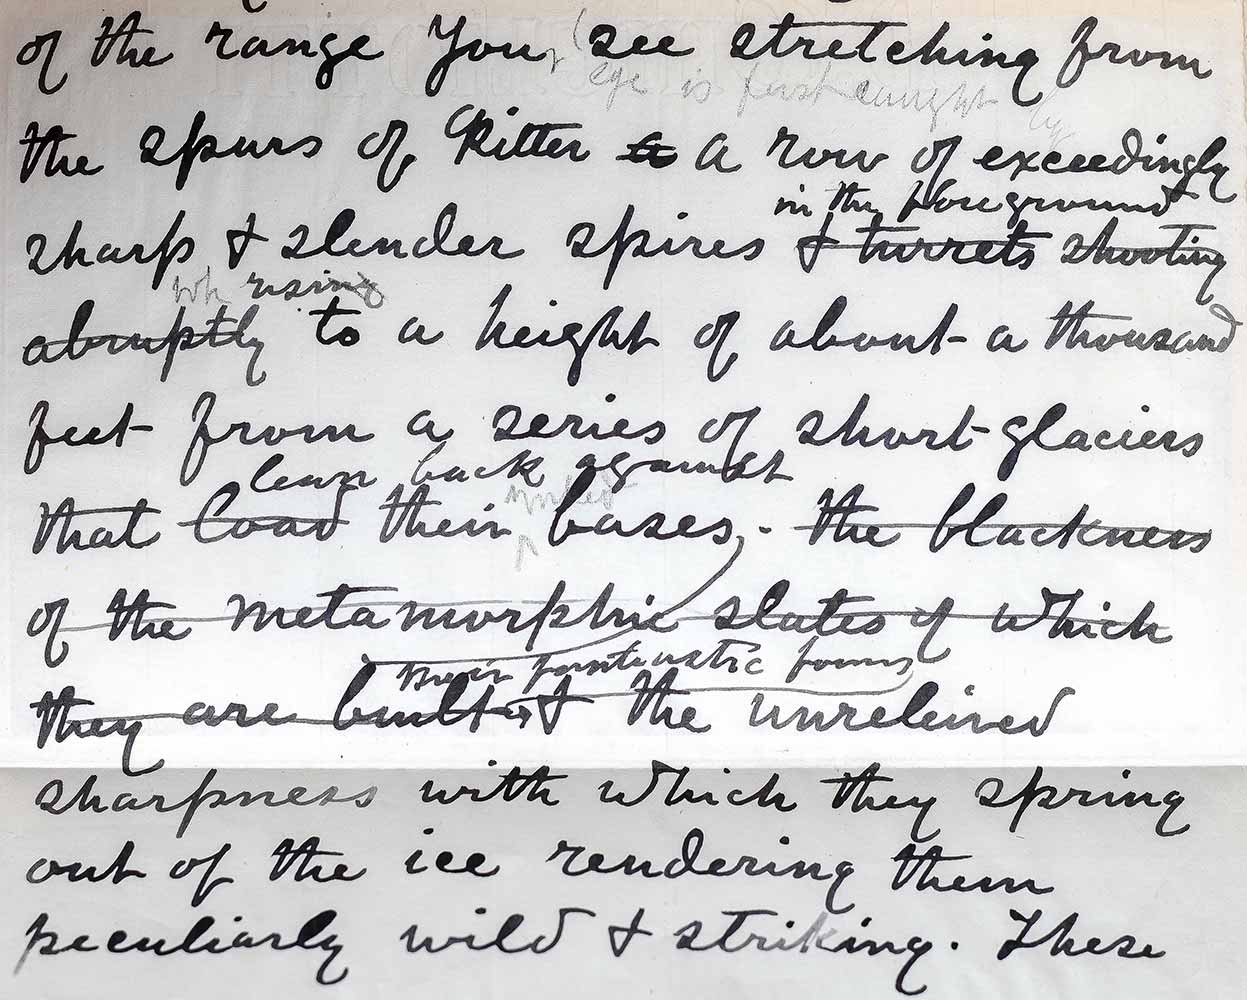 of the range You (see stretching from
eye is first caught by
the spurs of Ritter to a row of exceedingly
in the foreground
sharp & slender spires & turrets shooting
wh rising
abruptly to a height of about a thousand
feet from a series of short glaciers
lean back against
that load their bases, - the blackness
of the metamorphic slates of which
their fantastic forms
they are built is & the unreleived
sharpness with which they spring
out of the ice rendering them
peculiarly wild & striking. These